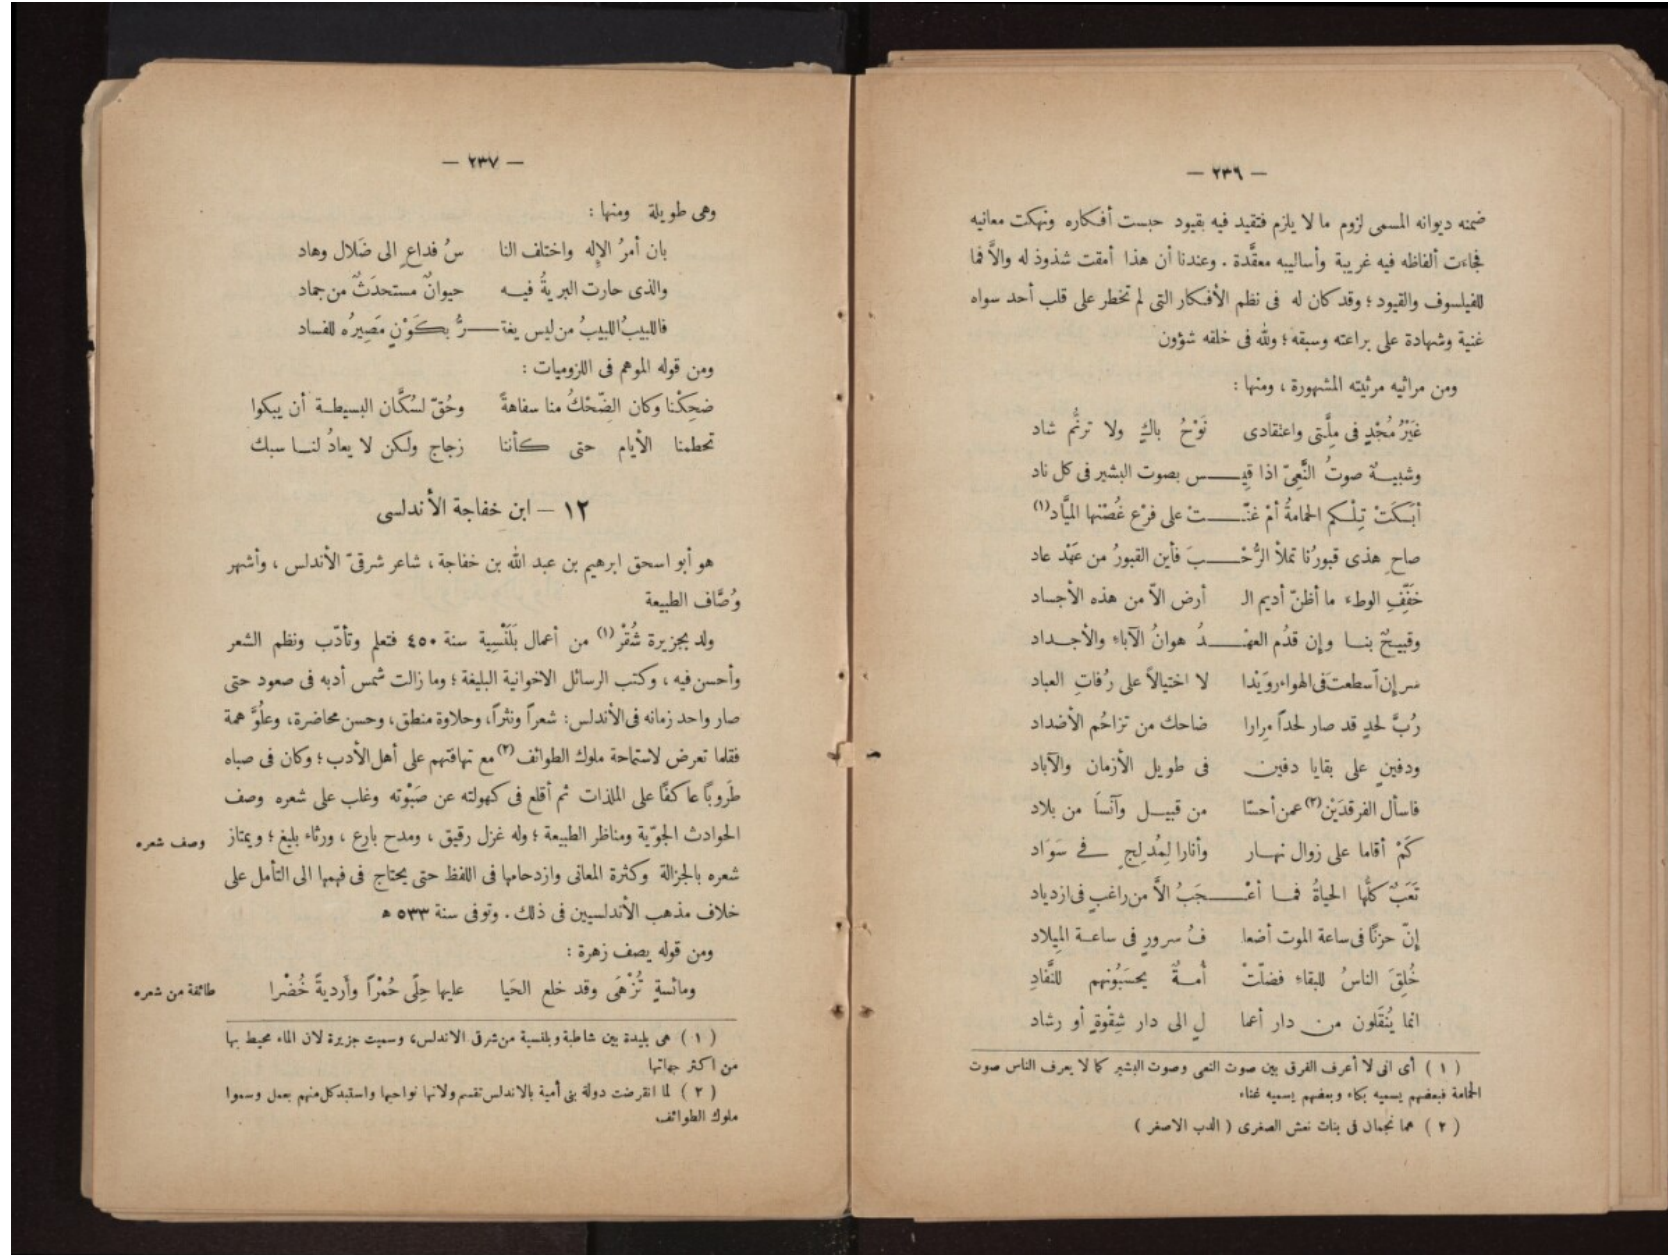 — ٢٣٦ —
ضمنه ديوانه المسمى لزوم ما لا يلزم فتقيد فيه بقيود حبست أفكاره ونهكت معانيه
فجاءت ألفاظه فيه غريبة وأساليبه معقَّدة . وعندنا أن هذا أمقت شذوذ له والاَّ فما
للفيلسوف والقيود ؛ وقد كان له فى نظم الأفكار التى لم تخطر على قلب أحد سواه
غنية وشهادة على براعته وسبقه ؛ ولله فى خلقه شؤون
ومن مراثيه مرثيته المشهورة ، ومنها :
غَيْرُ مُجْدٍ فى مِلَّتى واعتقادى نَوْحُ باكٍ ولا ترنُّم شاد
وشبيـهٌ صوتُ النَّعِىّ اذا قِيـــس بصوت البشير فى كل ناد
أبَكَتْ تِلْكم الحمامةُ أمْ غنّـــتْ على فرْع غُصْنها الميَّاد (١)
صاح هذى قبورُنا تملأ الرُّحْـــبَ فأين القبورُ من عَهْد عاد
خَفِّفِ الوطءَ ما أظنّ أديم الـ أرض الاّ من هذه الأجساد
وقبيحٌ بنـا وإن قدُم العهْـــدُ هوانُ الآباءِ والأجـداد
سر إن أسطعت فى الهواء رويْدا لا اختيالاً على رُفاتِ العباد
رُبَّ لحدٍ قد صار لحداً مِرارا ضاحك من تزاحُم الأضداد
ودفينٍ على بقايا دفين فى طويل الأزمان والآباد
فاسأل الفرقدَيْن (٢) عمن أحسّا من قبيـل وآنسَا من بلاد
كَمْ أقاما على زوال نهـار وأنارا لِمُدْلِجٍ فى سَوَاد
تَعَبٌ كلُّها الحياةُ فمـا أعْـــجَبُ الاَّ من راغبٍ فى ازدياد
إنّ حزنًا فى ساعة الموت أضعا فُ سرورٍ فى ساعـة المِيلاد
خُلِقَ الناسُ للبقاءِ فضلّتْ أمـةٌ يحسَبُونهم للنَّفادِ
انما يُنْقَلون من دار أعما ل الى دار شِقْوةٍ أو رشاد
( ١ ) أى انى لا أعرف الفرق بين صوت النعى وصوت البشير كما لا يعرف الناس صوت
الحمامة فبعضهم يسميه بكاء وبعضهم يسميه غناء
( ٢ ) هما نجمان فى بنات نعش الصغرى ( الدب الاصغر )
— ٢٣٧ —
وهى طويلة ومنها :
بان أمرُ الإِله واختلف النا سُ فداعٍ الى ضَلال وهاد
والذى حارت البريةُ فيـه حيوانٌ مستحدَثٌ من جماد
فاللبيبُ اللبيبُ من ليس يغتـــرُّ بكَوْنٍ مَصِيرُه للفساد
ومن قوله الموهم فى اللزوميات :
ضحِكْنا وكان الضِّحْكُ منا سفاهةً وحُقّ لسُكَّان البسيطـة أن يبكوا
تحطمنا الأيام حتى كأننا زجاج ولكن لا يعادُ لنـا سبك
١٢ – ابن خفاجة الأندلسى
هو أبو اسحق ابرهيم بن عبد الله بن خفاجة ، شاعر شرقىّ الأندلس ، وأشهر
وُصَّاف الطبيعة
ولد بجزيرة شُقْر (١) من أعمال بَلَنْسِية سنة ٤٥٠ فتعلم وتأدّب ونظم الشعر
وأحسن فيه ، وكتب الرسائل الاخوانية البليغة ؛ وما زالت شمس أدبه فى صعود حتى
صار واحد زمانه فى الأندلس : شعراً ونثراً، وحلاوة منطق، وحسن محاضرة، وعلُوَّ همة
فقلما تعرض لاستماحة ملوك الطوائف (٢) مع تهافتهم على أهل الأدب ؛ وكان فى صباه
طَروبًا عاكفًا على الملذات ثم أقلع فى كهولته عن صَبْوته وغلب على شعره وصف
الحوادث الجوّية ومناظر الطبيعة ؛ وله غزل رقيق ، ومدح بارع ، ورثاء بليغ ؛ ويمتاز
وصف شعره
شعره بالجزالة وكثرة المعانى وازدحامها فى اللفظ حتى يحتاج فى فهمها الى التأمل على
خلاف مذهب الأندلسيين فى ذلك . وتوفى سنة ٥٣٣ ه
ومن قوله يصف زهرة :
ومائسةٍ تُزْهَى وقد خلع الحَيا عليها حِلًى حُمْراً وأرديةً خُضْرا
طائفة من شعره
( ١ ) هى بليدة بين شاطبة وبلنسية من شرقى الاندلس، وسميت جزيرة لان الماء محيط بها
من اكثر جهاتها
( ٢ ) لما انقرضت دولة بنى أمية بالاندلس تقسم ولاتها نواحيها واستبد كل منهم بعمل وسموا
ملوك الطوائف